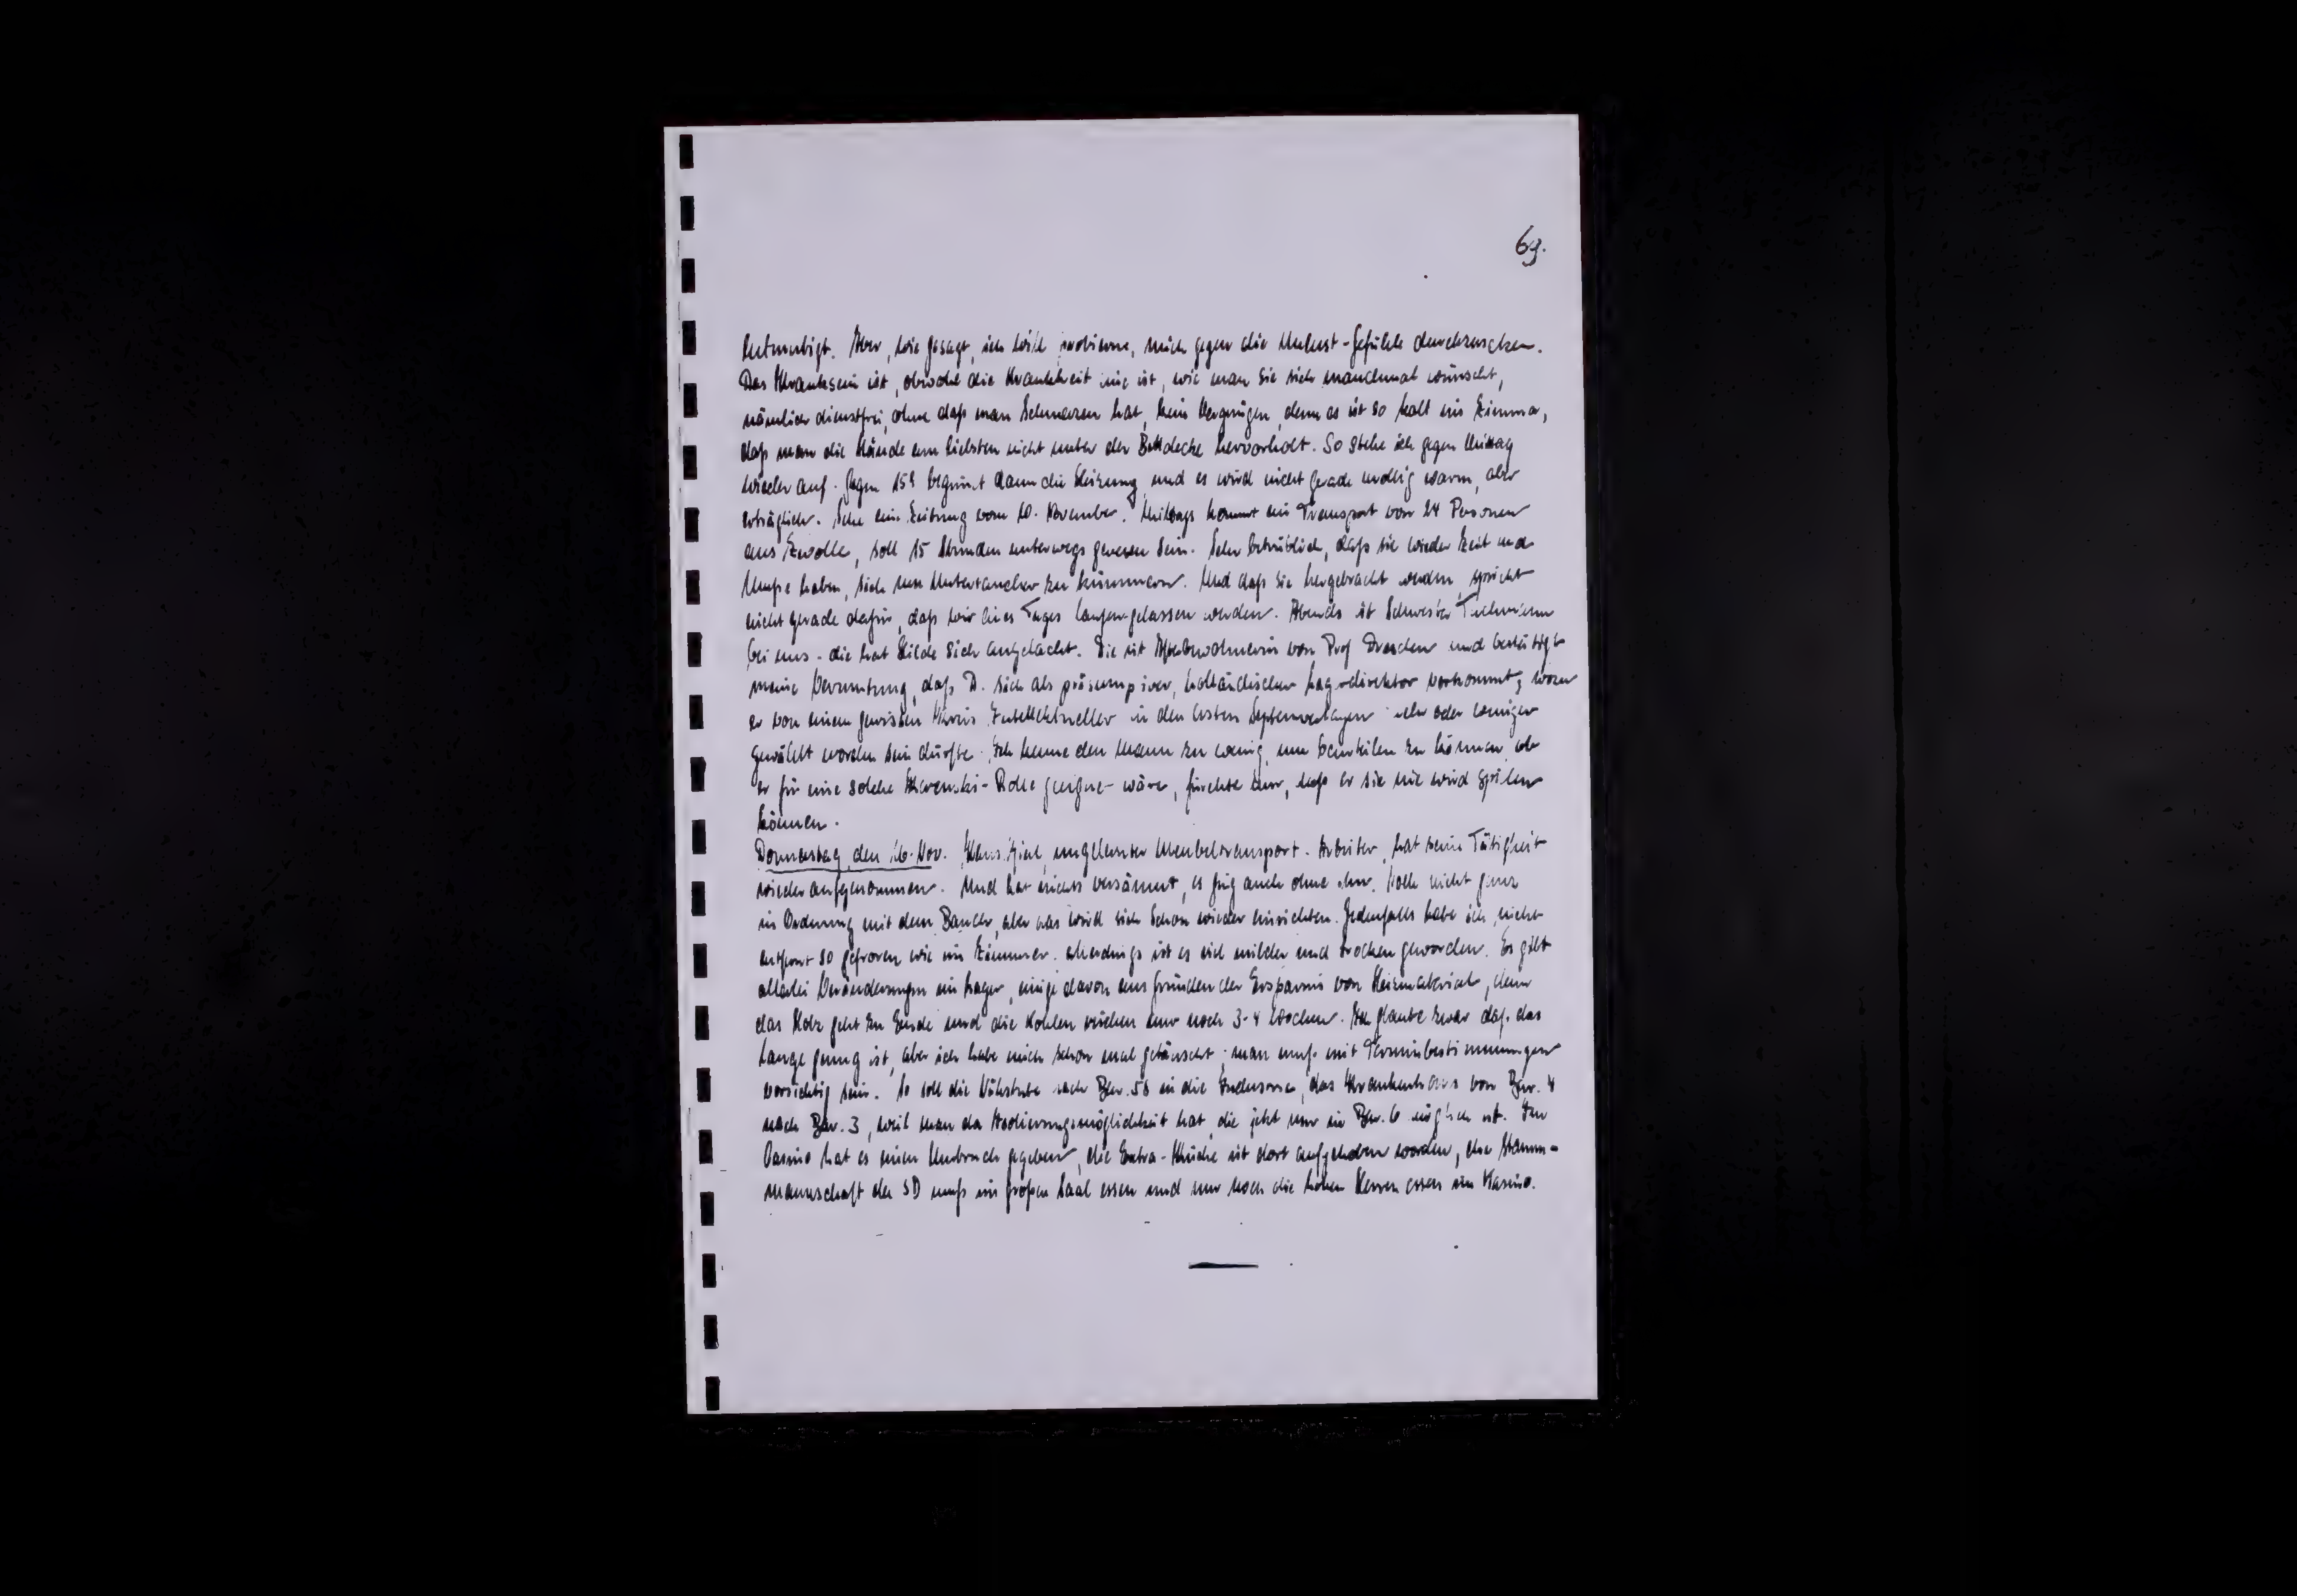 69.
entmutigt. Aber, wie gesagt, ich will probieren, mich gegen die Unlust-Gefühle durchzusetzen.
Das Kranksein ist, obwohl die Krankheit nie ist, wie man sie sich manchmal wünscht,
nämlich dienstfrei, ohne daß man Schmerzen hat, kein Vergnügen, denn es ist so kalt im Zimmer,
daß man die Hände am liebsten nicht unter der Bettdecke hervorholt. So stehe ich gegen Mittag
wieder auf. Gegen 15h beginnt dann die Heizung, und es wird nicht gerade mollig warm, aber
erträglich. Sehe eine Zeitung vom 10. November. Mittags kommt ein Transport von 24 Personen
aus Zwolle, soll 15 Stunden unterwegs gewesen sein. Sehr betrüblich, daß sie wieder Zeit und
Muße haben, sich um Untertaucher zu kümmern. Und daß sie hergebracht werden, spricht
nicht gerade dafür, daß wir eines Tages laufen gelassen werden. Abends ist Schwester
bei uns - die hat Hilde sich angelacht. Sie ist Mitbewohnerin von Prof Dresden und bestätigt
meine Vermutung, daß D. sich als präsumptiver, holländischer Lagerdirektor vorkommt, wozu
er von einem gewissen Kreis Intellektueller in den ersten Septembertagen mehr oder weniger
gewählt worden sein dürfte. Ich kenne den Mann zu wenig, um beurteilen zu können, ob
er für eine solche Kerenski-Rolle geeignet wäre, fürchte aber, daß er sie nie wird spielen
können.
Donnerstag, den 16. Nov. ungelernter Moebeltransport-Arbeiter, hat seine Tätigkeit
wieder aufgenommen. Und hat nichts versäumt, es ging auch ohne ihn. Noch nicht ganz
in Ordnung mit dem Bauch, aber das wird sich schon wieder einrichten. Jedenfalls habe ich nicht
entfernt so gefroren wie im Zimmer. Allerdings ist es viel milder und trocken geworden. Es gibt
allerlei Veränderungen im Lager, einige davon aus Gründen der Ersparnis von Heizmaterial, denn
das Holz geht zu Ende und die Kohlen reichen nur noch 3-4 Wochen. Ich glaube zwar, daß das
lange genug ist, aber ich habe mich schon mal getäuscht; man muß mit Terminbestimmungen
vorsichtig sein. So soll die Nähstube nach Bar. 58 in die Industrie, das Krankenhaus von Bar. 4
nach Bar. 3, weil man da Isolierungsmöglichkeit hat, die jetzt nur in Bar. 6 möglich ist. Im
Casino hat es einen Umbruch gegeben, die Extra-Küche ist dort aufgehoben worden, die Stamm-
mannschaft der SD muß im großen Saal essen und nur noch die hohen Herren essen im Kasino.